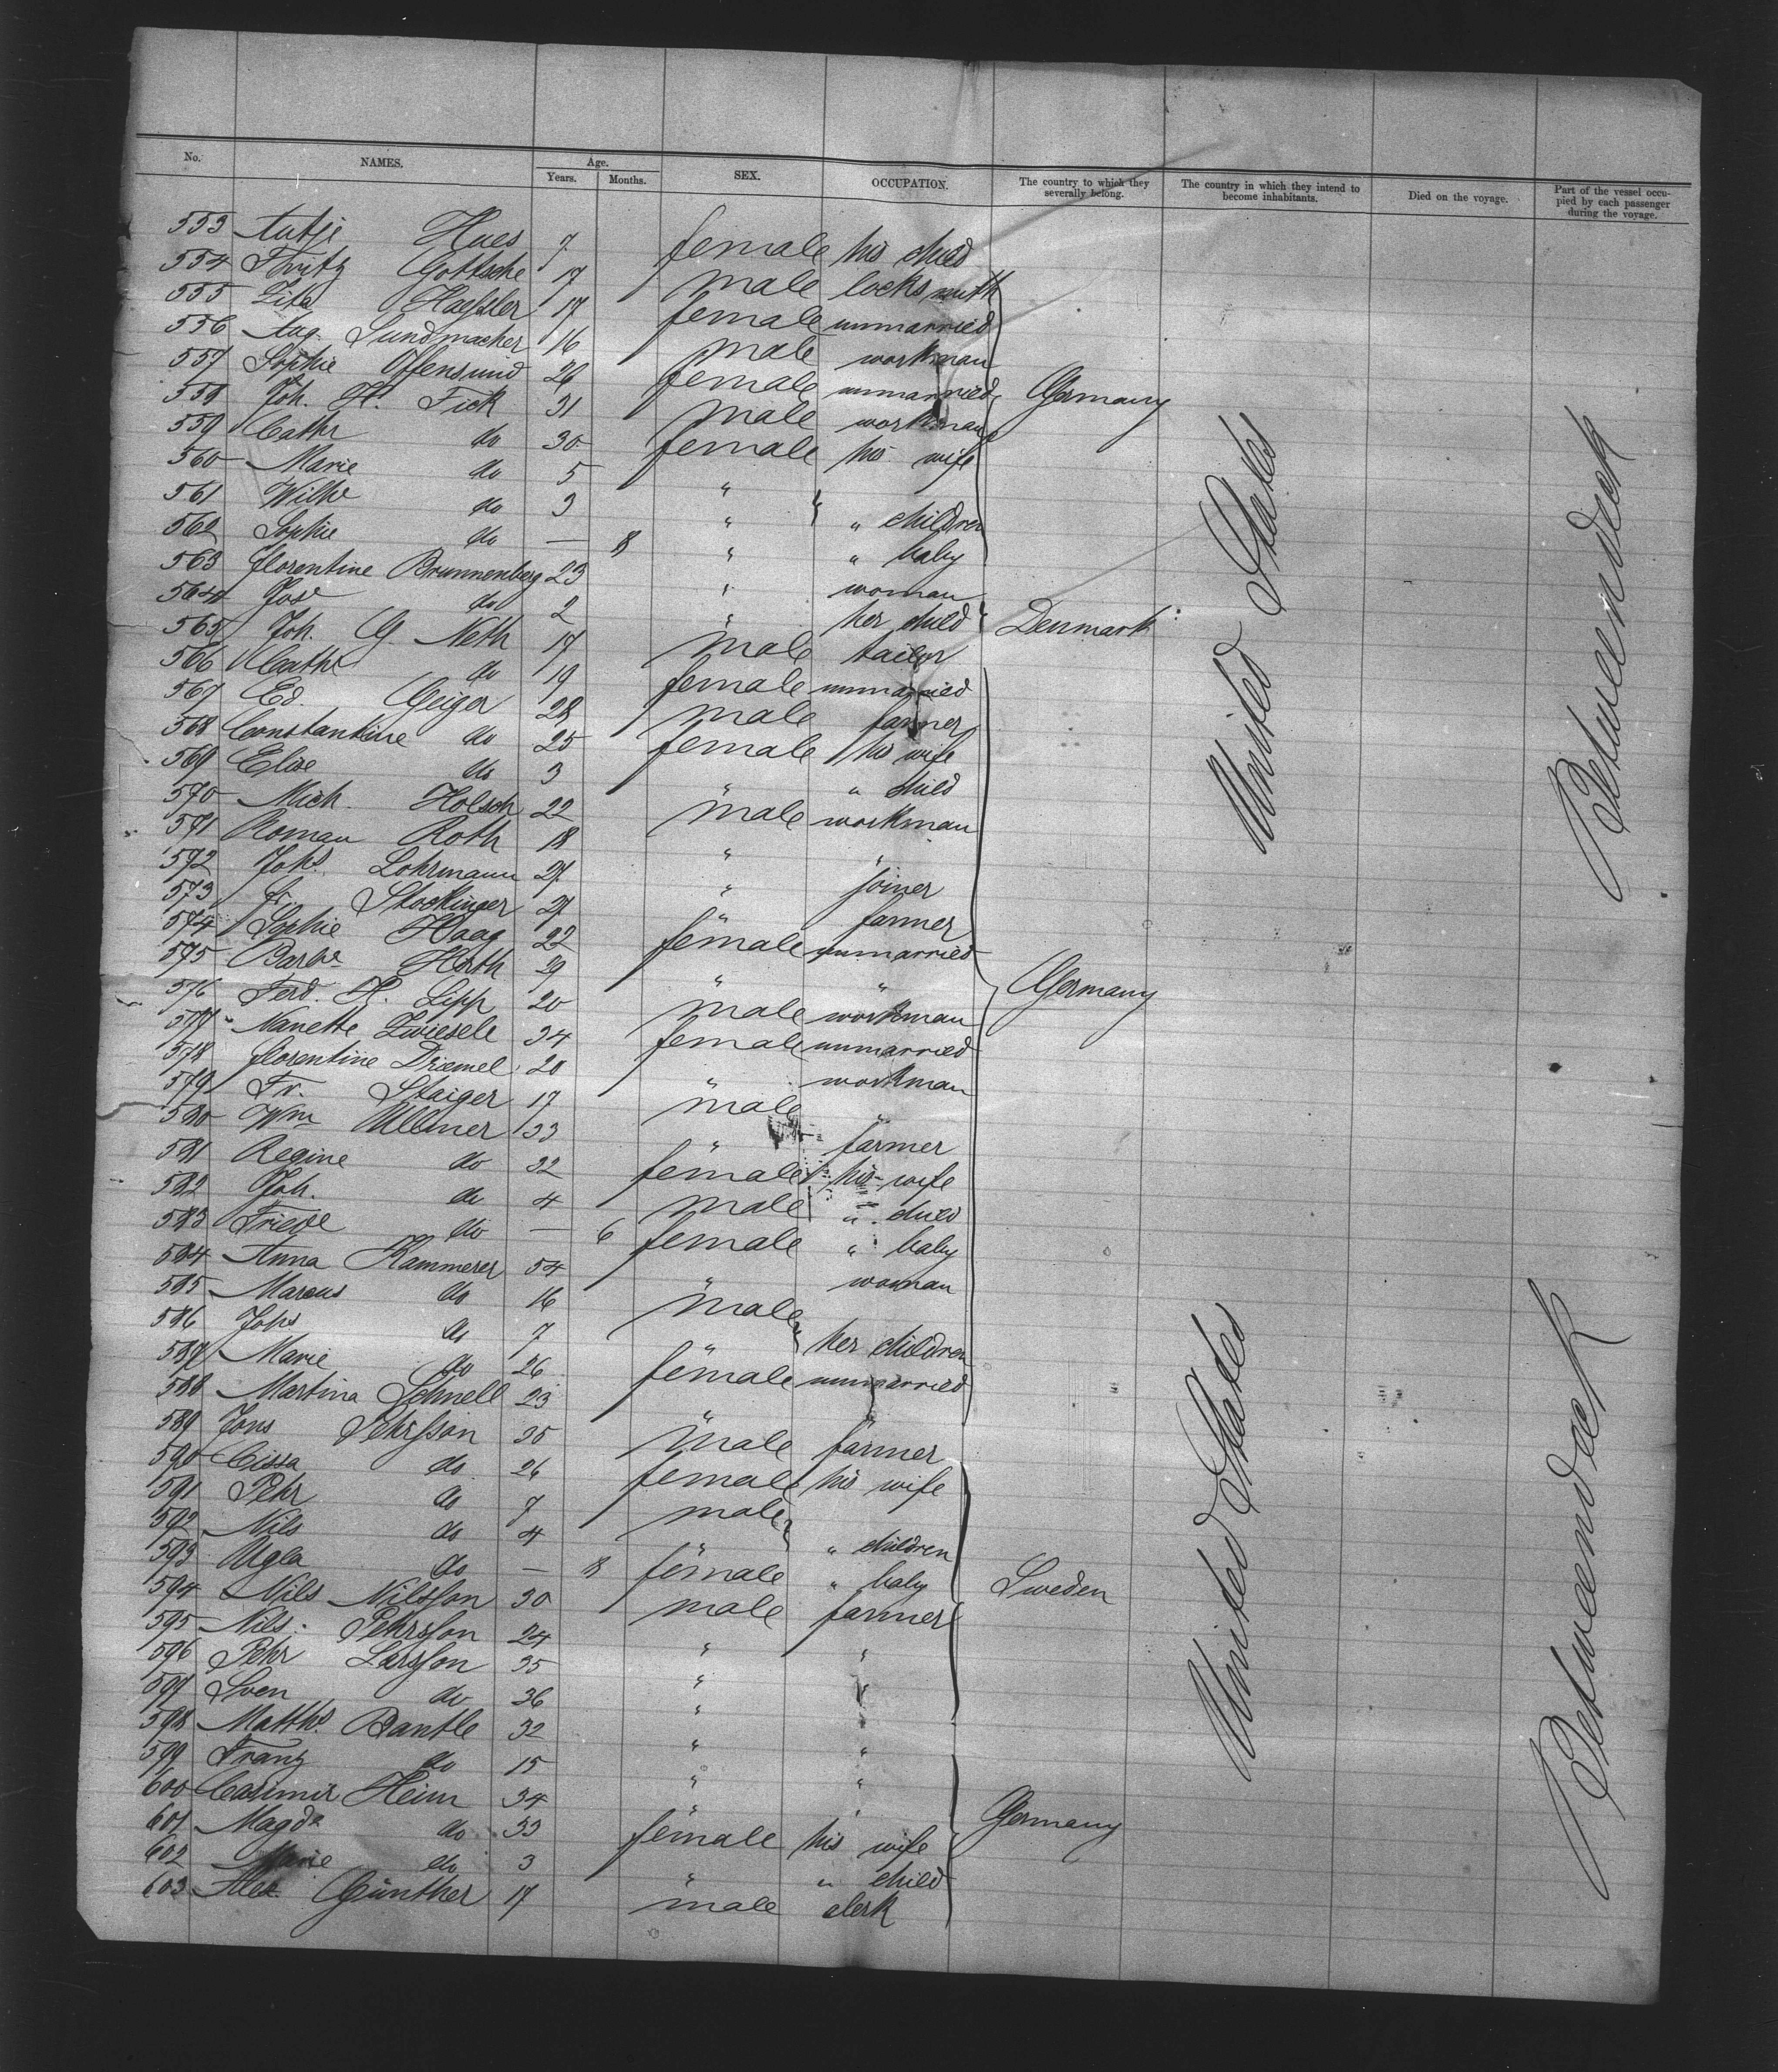 No. NAMES. Age. Years. Months. SEX. OCCUPATION. The country to which they severally belong. The country in which they intend to become inhabitants. Died on the voyage. Part of the vessel occupied by each passenger during the voyage.
553 Antje Hues 7 female his child
554 Fritz Gottsche 17 male locksmith
555 Zita Haessler 17 female unmarried
556 Aug. Sundmacher 16 male workman
557 Sophie Offensund 26 female unmarried Germany
558 Joh. H. Fick 31 male workman
559 Cathe do 30 female his wife
560 Marie do 5 "
561 Wilhe do 3 " " children
562 Sophie do — 8 " " baby
563 Florentine Brunnenberg 23 " woman
564 Jose do 2 " her child Denmark
565 Joh. G. Neth 17 male tailor
566 Cathe do 19 female unmarried
567 Ed. Geiger 28 male farmer
568 Constantine do 25 female his wife
569 Elise do 3 " " child
570 Mich. Holsch 22 male workman
571 Roman Roth 18 " "
572 Johs. Lohrmann 27 " joiner
573 Fr. Stockinger 27 " farmer
574 Sophie Haag 22 female unmarried
575 Barbe Hirth 29 " "
576 Ferd. H. Lipp 20 male workman Germany
577 Nanette Zwiesele 34 female unmarried
578 Florentine Dremel 20 " workman
579 Fr. Staiger 17 male "
580 Wm Ullmer 33 " farmer
581 Regine do 32 female his wife
582 Joh. do 4 male " child
583 Friede do — 6 female " baby
584 Anna Kammerer 54 " woman
585 Marcus do 16 male
586 Johs do 7 " her children
587 Marie do 26 female unmarried
588 Martina Schnell 23 " "
589 Jons Pehrsson 35 male farmer
590 Cissa do 26 female his wife
591 Pehr do 7 male
592 Nils do 4 " " children
593 Ugla do — 8 female " baby Sweden
594 Nils Nilsson 30 male farmer
595 Nils Pehrsson 24 " "
596 Pehr Larsson 35 " "
597 Sven do 36 "
598 Matths. Bantle 32 " "
599 Franz do 15 " "
600 Casimir Heim 34 " "
601 Magde do 33 female his wife Germany
602 Marie do 3 " " child
603 Alex. Günther 17 male clerk
United States
United States
Betweendeck
Betweendeck